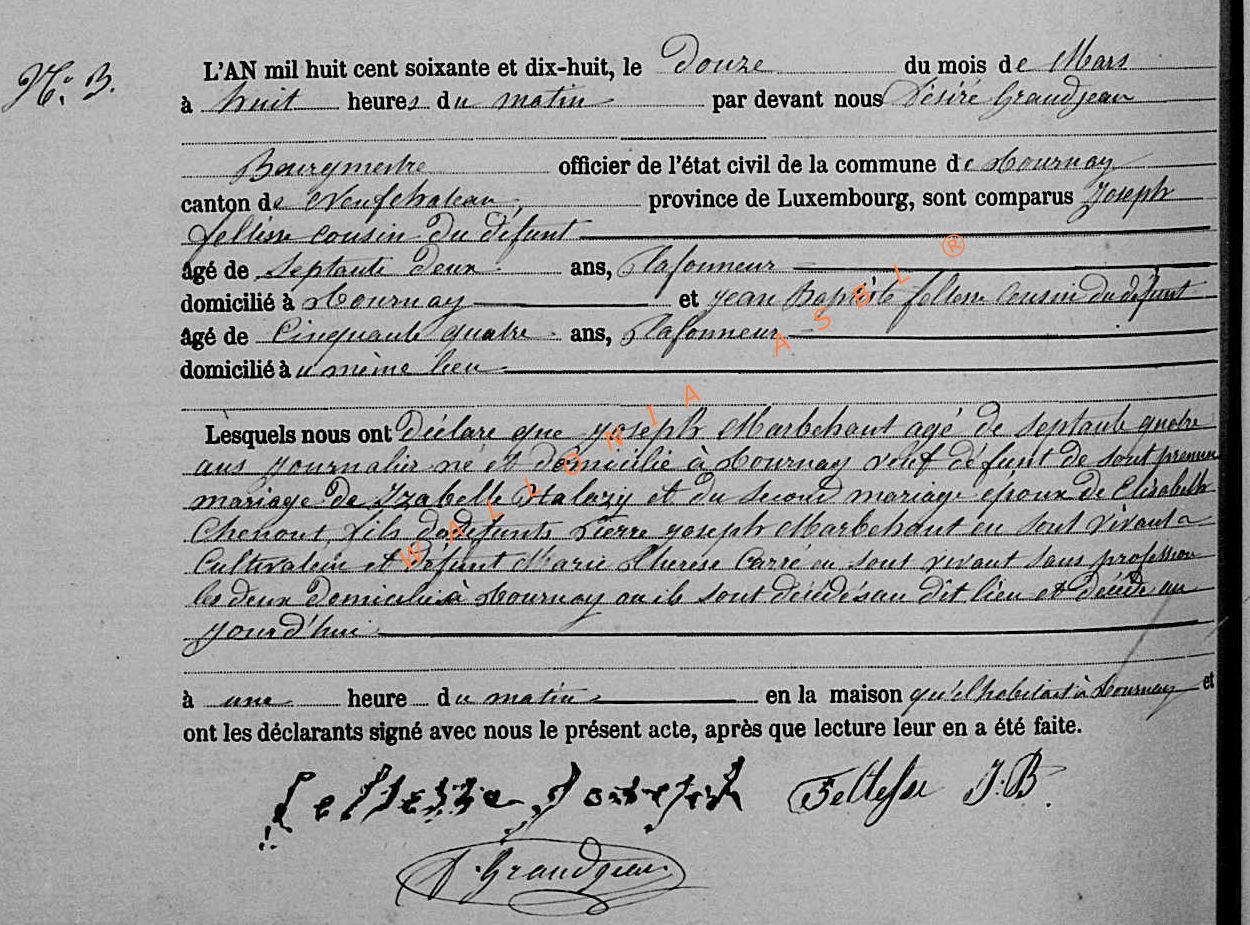 N° 3.
L'AN mil huit cent soixante et dix-huit, le Douze du mois de Mars
à huit heures du matin par devant nous Désiré Grandjean
Bourgmestre officier de l'état civil de la commune de Tournay
canton de Neufchateau, province de Luxembourg, sont comparus Joseph
fellesse cousin du défunt
âgé de septante deux ans, Plafonneur
domicilié à Tournay et jean Baptiste fellesse Cousin du défunt
âgé de Cinquante quatre ans, Plafonneur
domicilié au même lieu
Lesquels nous ont déclaré que joseph Marbehant agé de septante quatre
ans journalier né et domicilié à Tournay veuf défunt de sont premier
mariage de Izabelle Halazy et du second mariage époux de Elisabeth
Chenout, fils de défunts Pierre joseph Marbehant en sont vivant
Cultivateur et défunt Marie Thérèse Carré en sont vivant sans profession
les deux domicilié à Tournay ou ils sont décédés au dit lieu et décédé au
jourd'hui
à une heure du matin en la maison qu'el habitait à Tournay et
ont les déclarants signé avec nous le présent acte, après que lecture leur en a été faite.
Fellesse Josseph Fellesse J.B.
D. Grandjean
WALLONIA ASBL ®